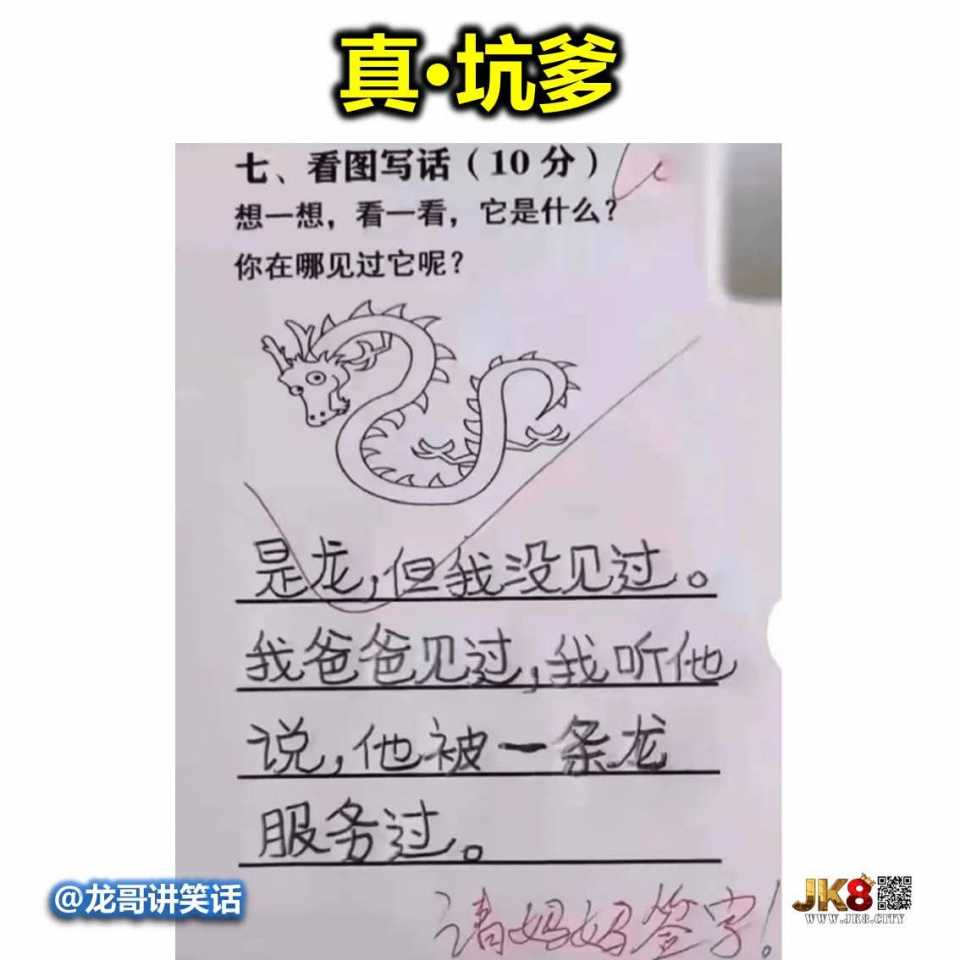 真·坑爹
七、看图写话（10 分）
想一想，看一看，它是什么？
你在哪见过它呢？
是龙，但我没见过。
我爸爸见过，我听他
说，他被一条龙
服务过。
请妈妈签字！
@龙哥讲笑话
JK8
WWW.JK8.CITY